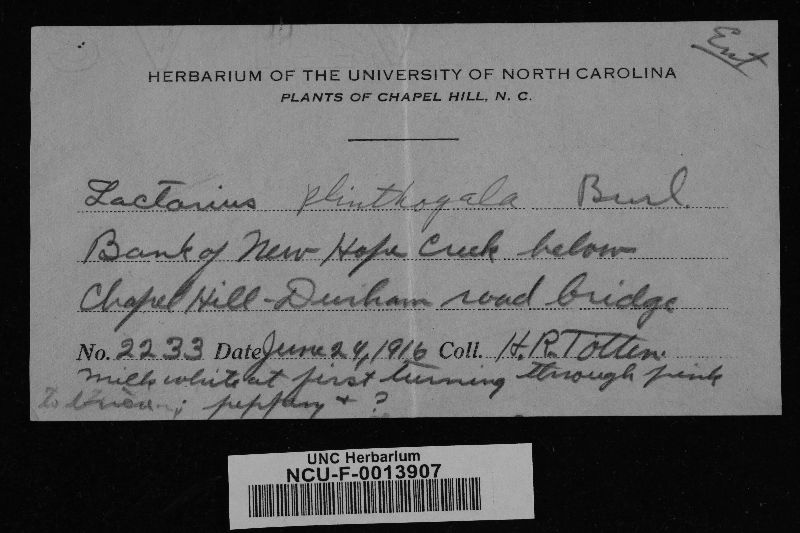 Ent
HERBARIUM OF THE UNIVERSITY OF NORTH CAROLINA
PLANTS OF CHAPEL HILL, N. C.
Lactarius plinthogala Burl.
Bank of New Hope Creek below
Chapel Hill-Durham road bridge
No. 2233 Date June 24, 1916 Coll. H.R. Totten.
Milk white at first turning through pink
to ; peppery + ?
UNC Herbarium
NCU-F-0013907